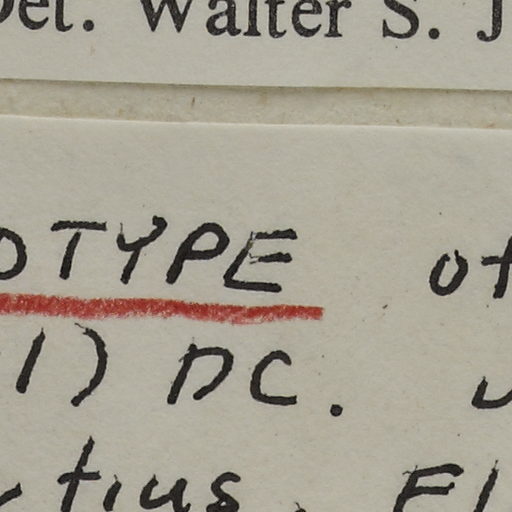 Det. Walter S. J
OTYPE of
1) DC.
tius. Fl